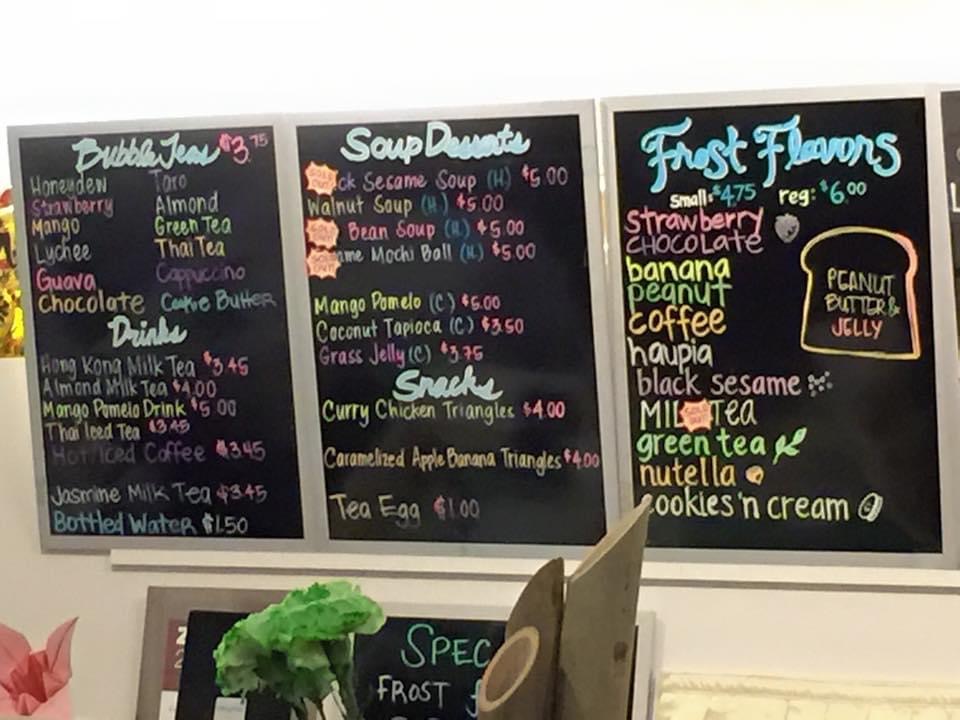 Bubble Teas $3.75
Honeydew Taro
Strawberry Almond
Mango Green Tea
Lychee Thai Tea
Guava Cappuccino
Chocolate Cookie Butter
Drinks
Hong Kong Milk Tea $3.45
Almond Milk Tea $4.00
Mango Pomelo Drink $5.00
Thai Iced Tea $3.45
Hot/Iced Coffee $3.45
Jasmine Milk Tea $3.45
Bottled Water $1.50
Soup Desserts
SOLD OUT! ck Sesame Soup (H) $5.00
Walnut Soup (H) $5.00
SOLD OUT! Bean Soup (H) $5.00
SOLD OUT! ame Mochi Ball (H) $5.00
Mango Pomelo (C) $5.00
Coconut Tapioca (C) $3.50
Grass Jelly (C) $3.75
Snacks
Curry Chicken Triangles $4.00
Caramelized Apple Banana Triangles $4.00
Tea Egg $1.00
Frost Flavors
small: $4.75 reg: $6.00
strawberry
CHOCOLATE
banana
peanut
coffee
haupia
black sesame
MIL SOLD OUT! TEA
green tea
nutella
cookies 'n cream
PEANUT
BUTTER &
JELLY
SPEC
FROST